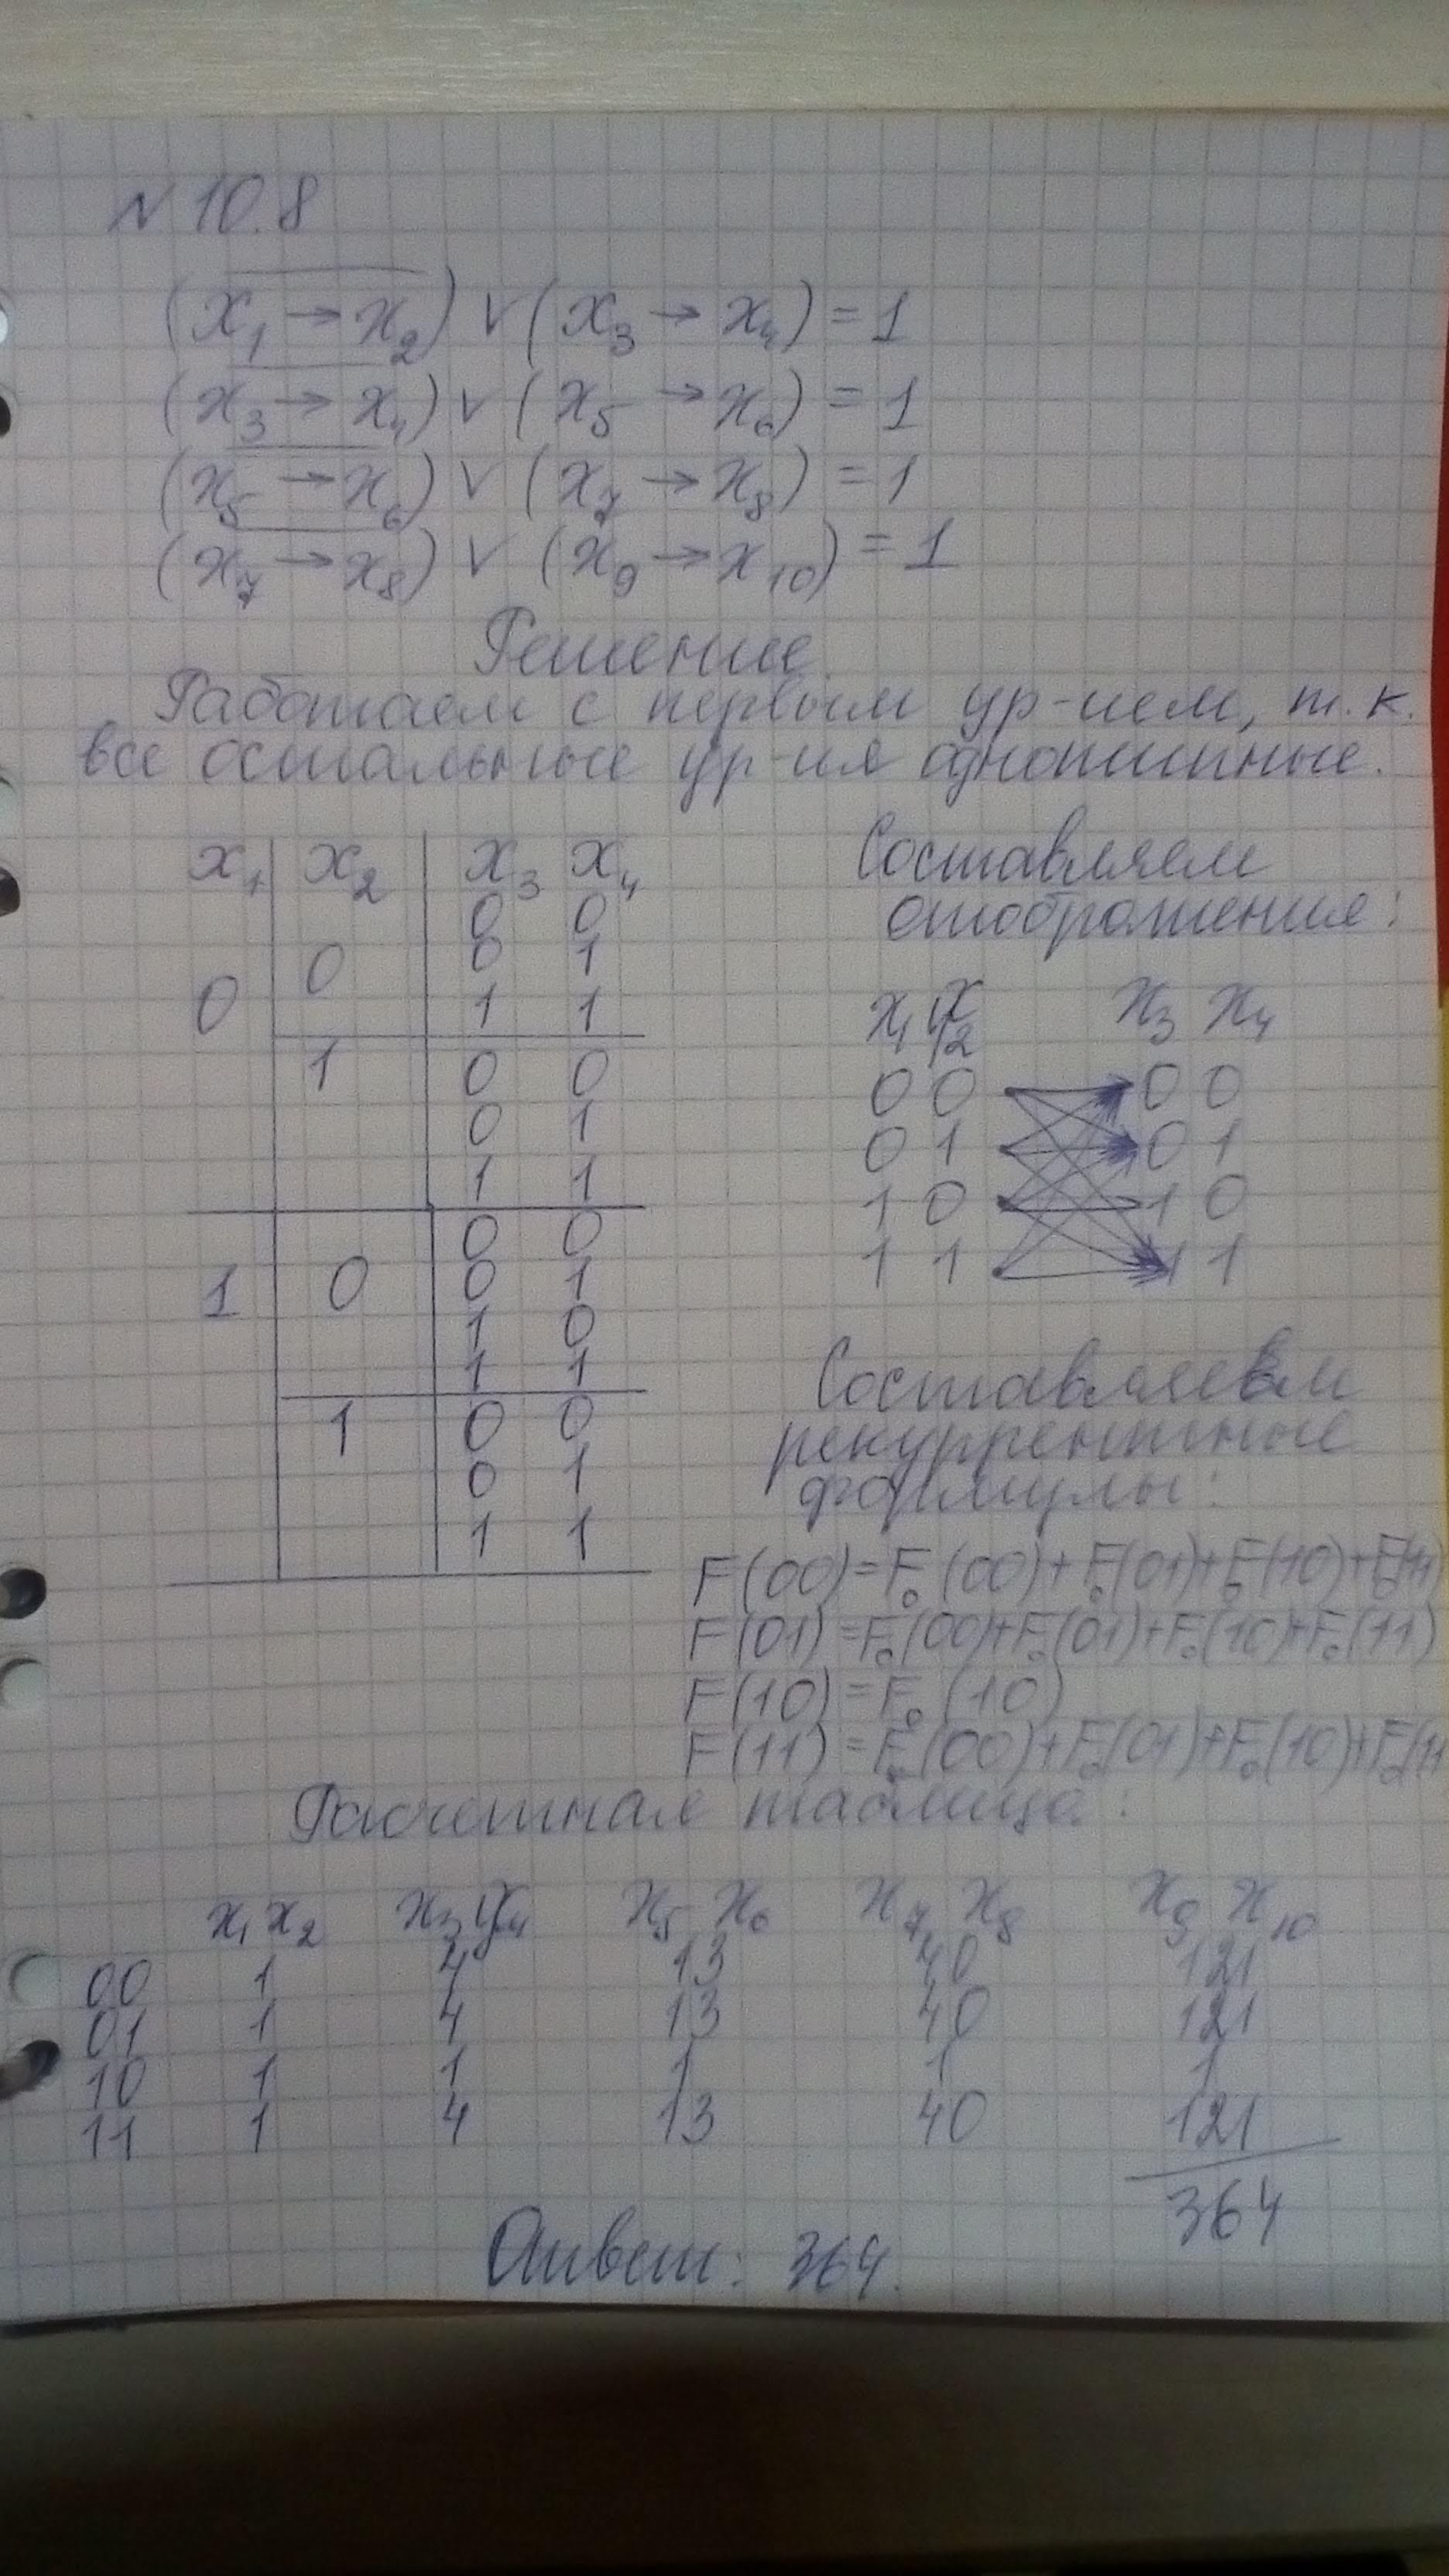 N 10.8
(x̅₁̅ ̅→̅ ̅x̅₂̅) ∨ (x₃ → x₄) = 1
(x̅₃̅ ̅→̅ ̅x̅₄̅) ∨ (x₅ → x₆) = 1
(x̅₅̅ ̅→̅ ̅x̅₆̅) ∨ (x₇ → x₈) = 1
(x̅₇̅ ̅→̅ ̅x̅₈̅) ∨ (x₉ → x₁₀) = 1
Решение
Работаем с первым ур-ием, т.к.
все остальные ур-ия однотипные.
x₁ x₂ x₃ x₄
0 0
0 0 1
0 1 1
1 0 0
0 1
1 1
0 0
1 0 0 1
1 0
1 1
1 0 0
0 1
1 1
Составляем
отображения:
x₁ x₂ x₃ x₄
0 0 0 0
0 1 0 1
1 0 1 0
1 1 1 1
Составляем
рекуррентные
формулы:
F(00)=F₀(00)+F₀(01)+F₀(10)+F₀(11)
F(01)=F₀(00)+F₀(01)+F₀(10)+F₀(11)
F(10)=F₀(10)
F(11)=F₀(00)+F₀(01)+F₀(10)+F₀(11
Расчетная таблица:
x₁ x₂ x₃ x₄ x₅ x₆ x₇ x₈ x₉ x₁₀
00 1 4 13 40 121
01 1 4 13 40 121
10 1 1 1 1 1
11 1 4 13 40 121
364
Ответ: 364.